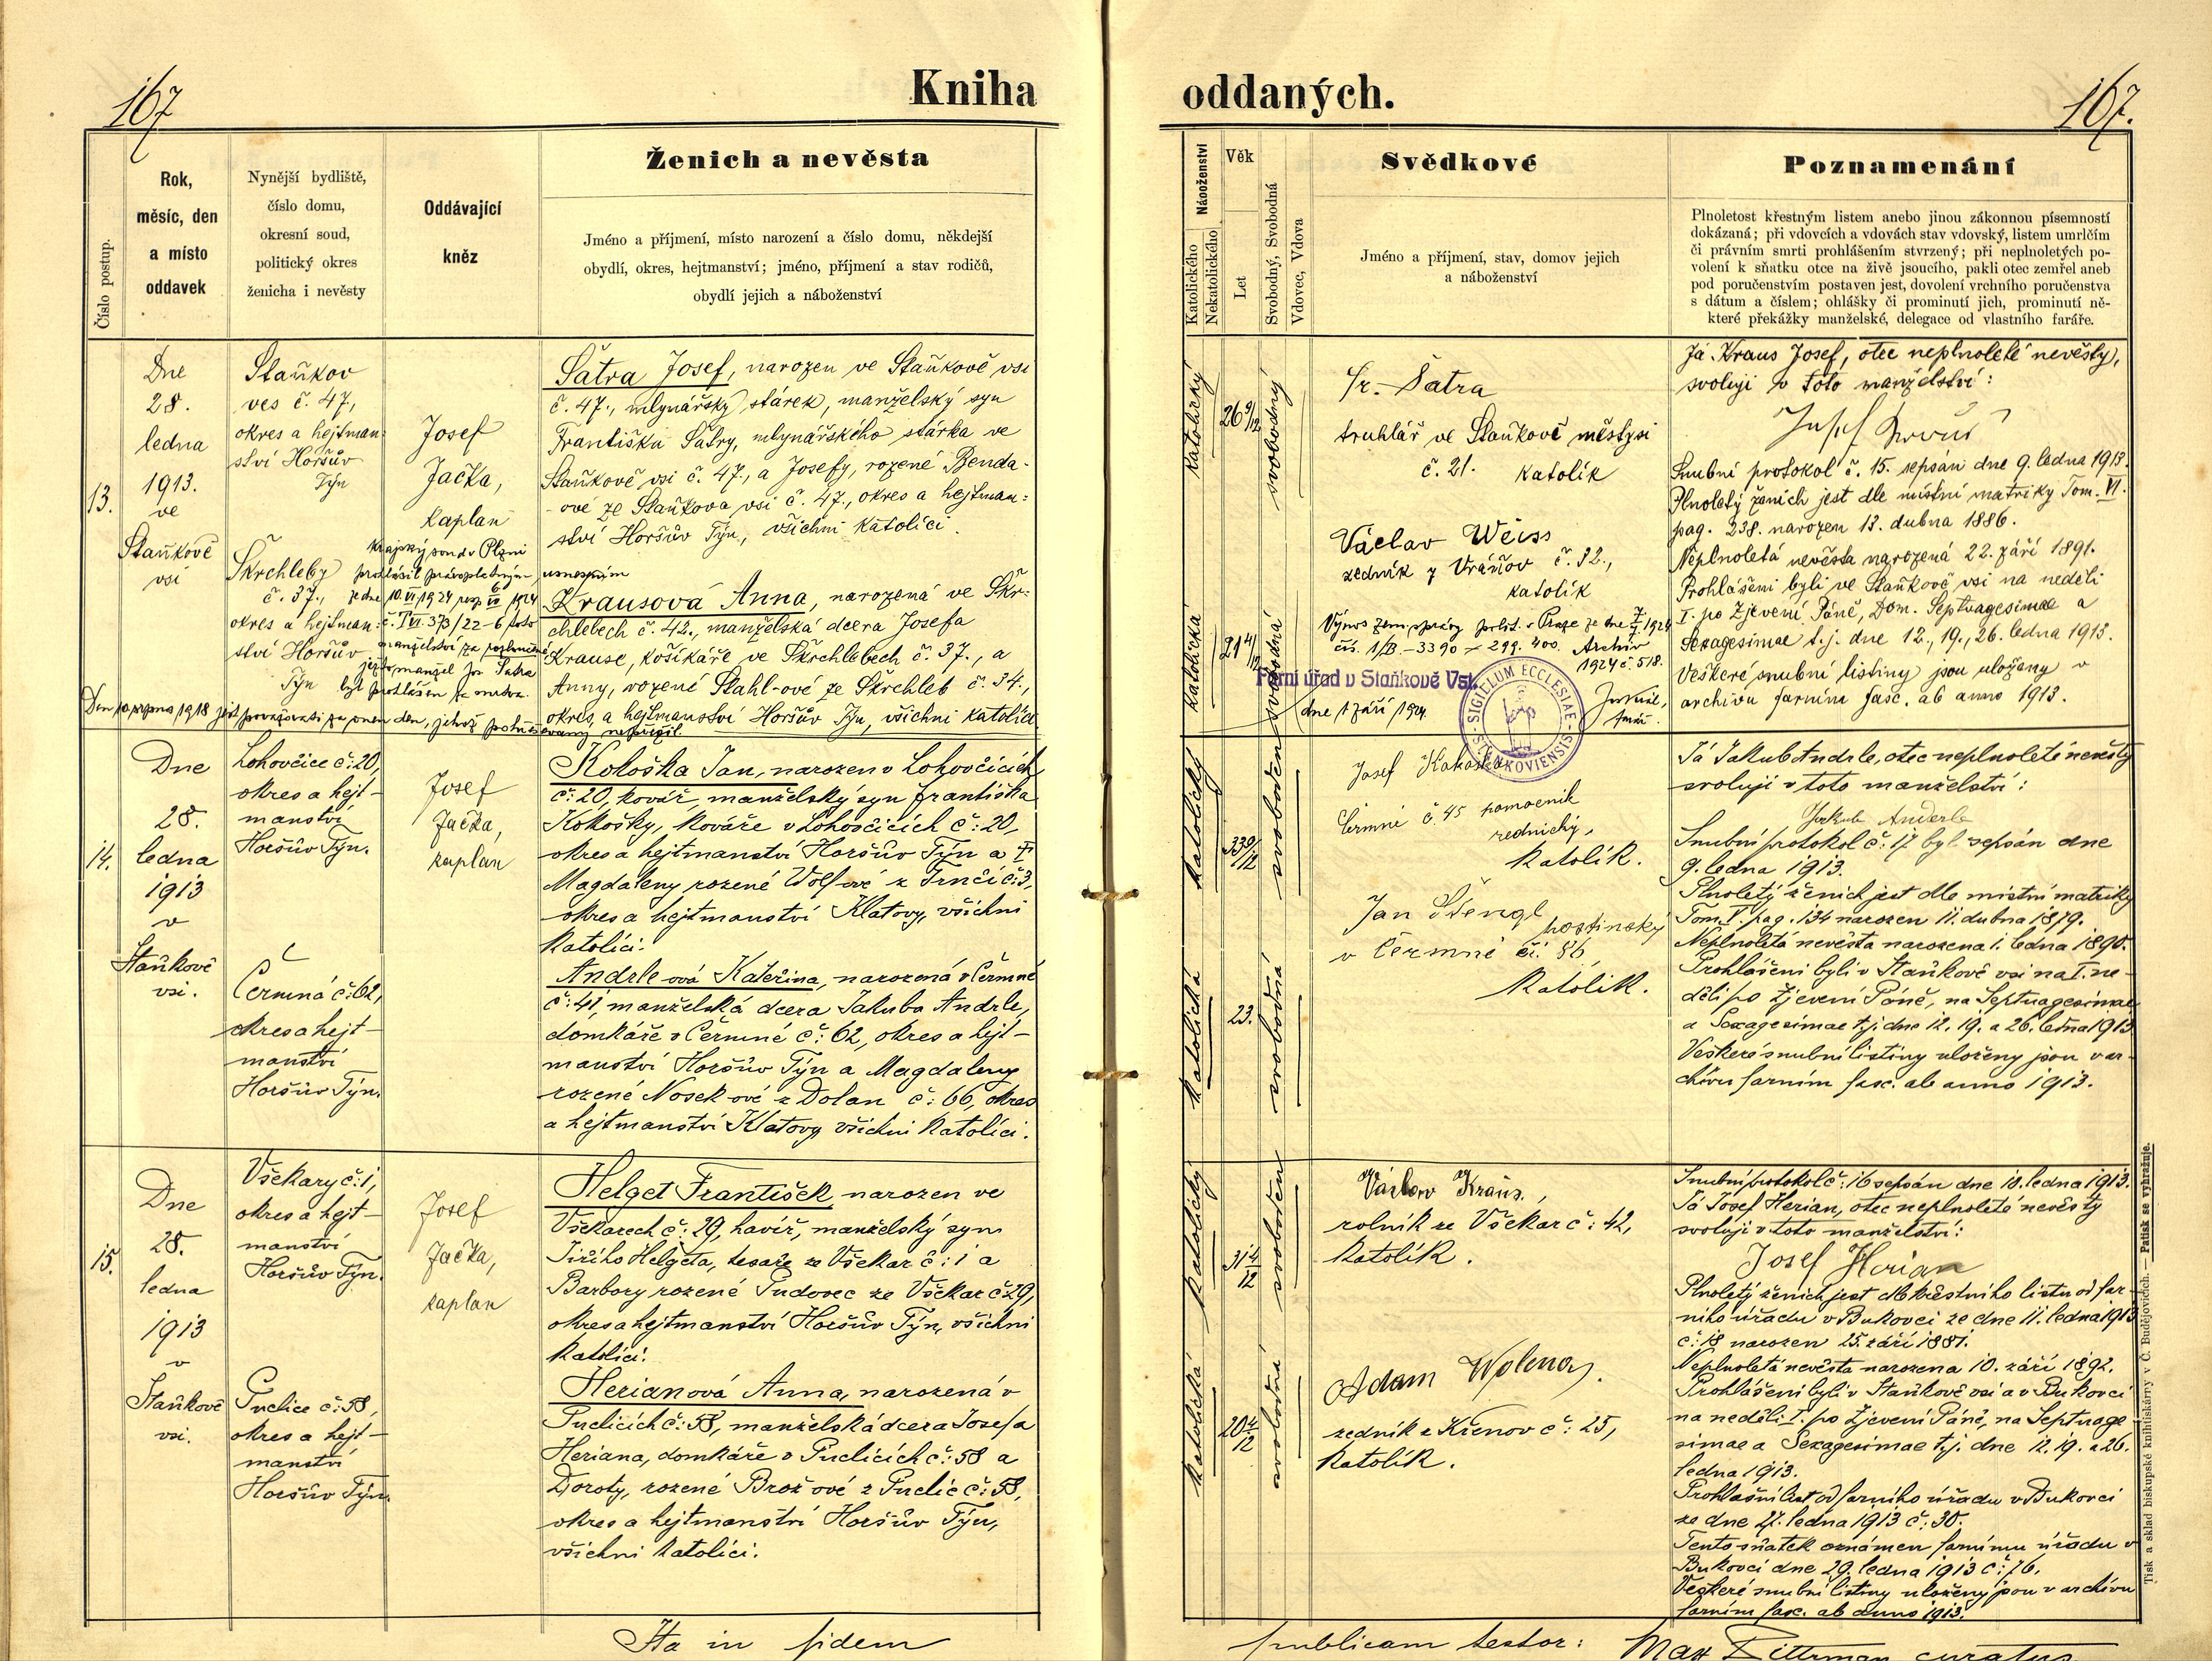 167
Kniha
Číslo postup.
Rok,
měsíc, den
a místo
oddavek
Nynější bydliště,
číslo domu,
okresní soud,
politický okres
ženicha i nevěsty
Oddávající
kněz
Ženich a nevěsta
Jméno a příjmení, místo narození a číslo domu, někdejší
obydlí, okres, hejtmanství; jméno, příjmení a stav rodičů,
obydlí jejich a náboženství
13.
Dne
28.
ledna
1913.
ve
Staňkově
vsi
Staňkov
ves č. 47,
okres a hejtman-
ství Horšův
Týn
Škrchleby
č. 37.,
okres a hejtman-
ství Horšův
Týn
Josef
Jačka,
kaplan
Šatra Josef, narozen ve Staňkově vsi
č. 47., mlynářský stárek, manželský syn
Františka Šatry, mlynářského stárka ve
Staňkově vsi č. 47., a Josefy, rozené Benda-
-ové ze Staňkova vsi č. 47., okres a hejtman:
ství Horšův Týn, všichni katolíci.
Krausová Anna, narozená ve Škr:
chlebech č. 42., manželská dcera Josefa
Krause, košíkáře ve Škrchlebech č. 37., a
Anny, rozené Stahl-ové ze Škrchleb č. 34.,
okres, a hejtmanství Horšův Týn, všichni katolíci
krajský soud v Plzni
prohlásil právoplatným usnesením
ze dne 10.VI.1924 1924
č. T VI. 373/22-6 toto
manželství za rozloučené
jezto manžel Jos. Šatra
byl prohlášen za mrtva.
Den 10. srpna 1918 jest považovati za onen den, jehož pohřešovaný nepřežil.
14.
Dne
28.
ledna
1913
v
Staňkově
vsi.
Lohovčice č: 20,
okres a hejt-
manství
Horšův Týn.
Čermná č: 62,
okres a hejt-
manství
Horšův Týn.
Josef
Jačka,
kaplan
Kokoška Jan, narozen v Lohovčicích
č: 20, kovář, manželský syn Františka
Kokošky, kováře v Lohovčicích č: 20,
okres a hejtmanství Horšův Týn a
Magdaleny rozené Wolf-ové z Trnčí č: 3,
okres a hejtmanství Klatovy, všichni
katolíci.
Andrle-ová Kateřina, narozená v Čermné
č: 41, manželská dcera Jakuba Andrle,
domkáře v Čermné č: 62, okres a hejt-
manství Horšův Týn a Magdaleny
rozené Nosek-ové z Dolan č: 66, okres
a hejtmanství Klatovy, všichni katolíci.
15.
Dne
28.
ledna
1913
v
Staňkově
vsi.
Všekary č: 1,
okres a hejt-
manství
Horšův Týn.
Puclice č: 58,
okres a hejt-
manství
Horšův Týn.
Josef
Jačka,
kaplan
Helget František, narozen ve
Všekarech č: 29, havíř, manželský syn
Jiřího Helgeta, tesaře ze Všekar č: 1 a
Barbory rozené Tudovec ze Všekar č 29,
okres a hejtmanství Horšův Týn, všichni
katolíci.
Herianová Anna, narozená v
Puclicích č: 58, manželská dcera Josefa
Heriana, domkáře v Puclicích č: 58 a
Doroty, rozené Brož-ové z Puclic č: 58,
okres a hejtmanství Horšův Týn,
všichni katolíci.
Ita in fidem
167.
oddaných.
Náboženství
Katolického
Nekatolického
Věk
Let
Svobodný, Svobodná
Vdovec, Vdova
Svědkové
Jméno a příjmení, stav, domov jejich
a náboženství
Poznamenání
Plnoletost křestným listem anebo jinou zákonnou písemností
dokázaná; při vdovcích a vdovách stav vdovský, listem umrlčím
či právním smrti prohlášením stvrzený; při neplnoletých po-
volení k sňatku otce na živě jsoucího, pakli otec zemřel aneb
pod poručenstvím postaven jest, dovolení vrchního poručenstva
s dátum a číslem; ohlášky či prominutí jich, prominutí ně-
které překážky manželské, delegace od vlastního faráře.
katolický
26 9/12
svobodný
katolická
21 4/12
svobodná
Fr. Šatra
truhlář ve Staňkově městysi
č. 21. katolík
Václav Weiss
zedník z Vránov č. 32.,
katolík
Výnos zem. správy polit. v Praze ze dne 1924
čís. 1/B-3390 - 299. 400. Archiv
1924 č. 518.
Farní úřad v Staňkově Vsi.
dne 1 září 1924.
SIGILLUM ECCLESIAE STANKOVIENSIS
Já Kraus Josef, otec neplnoleté nevěsty,
svoluji v toto manželství:
Josef Krauś
Snubní protokol č. 15. sepsán dne 9. ledna 1913.
Plnoletý ženich jest dle místní matriky Tom. VI.
pag. 238. narozen 13. dubna 1886.
Neplnoletá nevěsta narozená 22. září 1891.
Prohlášeni byli ve Staňkově vsi na neděli
I. po Zjevení Páně, Dom. Septuagesimae a
Sexagesimae t.j. dne 12., 19., 26. ledna 1913.
Veškeré snubní listiny jsou uloženy v
archivu farním fasc. ab anno 1913.
katolický
33 9/12
svoboden
katolická
23.
svobodná
Josef Kokoška
Čermné č. 45 pomocník
zednický,
katolík.
Jan Štengl hostinský
v Čermné č. 86,
katolík.
Já Jakub Andrle, otec neplnoleté nevěsty
svoluji v toto manželství:
Jakub Anderle
Snubní protokol č: 17 byl sepsán dne
9. ledna 1913.
Plnoletý ženich jest dle místní matriky
Tom. V. pag. 134 narozen 11. dubna 1879.
Neplnoletá nevěsta narozena 1. ledna 1890.
Prohlášeni byli v Staňkově vsi na I. ne-
děli po Zjevení Páně, na Septuagesimae
a Sexagesimae t.j. dne 12. 19. a 26. ledna 1913
Veškeré snubní listiny uloženy jsou v ar-
chivu farním fasc. ab anno 1913.
katolický
31 4/12
svoboden
katolická
20 4/12
svobodná
Václav Kraus,
rolník ze Všekar č: 42,
katolík.
Adam Wolena.
zedník z Křenov č: 25,
katolík.
Snubní protokol č: 16 sepsán dne 10. ledna 1913.
Já Josef Herian, otec neplnoleté nevěsty
svoluji v toto manželství:
Josef Herian
Plnoletý ženich jest dle křestního listu od far-
ního úřadu v Bukovci ze dne 11. ledna 1913
č: 18 narozen 25. září 1881.
Neplnoletá nevěsta narozena 10. září 1892.
Prohlášeni byli v Staňkově vsi a v Bukovci
na neděli I. po Zjevení Páně, na Septuage
simae a Sexagesimae t.j. dne 12. 19. a 26.
ledna 1913.
Prohlašní list od farního úřadu v Bukovci
ze dne 27. ledna 1913 č: 30.
Tento sňatek oznámen farnímu úřadu v
Bukovci dne 29. ledna 1913 č: 76.
Veškeré snubní listiny uloženy jsou v archivu
farním fasc. ab anno 1913.
Tisk a sklad biskupské knihtiskárny v Č. Budějovicích. — Patisk se vyhražuje.
publicam testor: Max Dittrman curatus